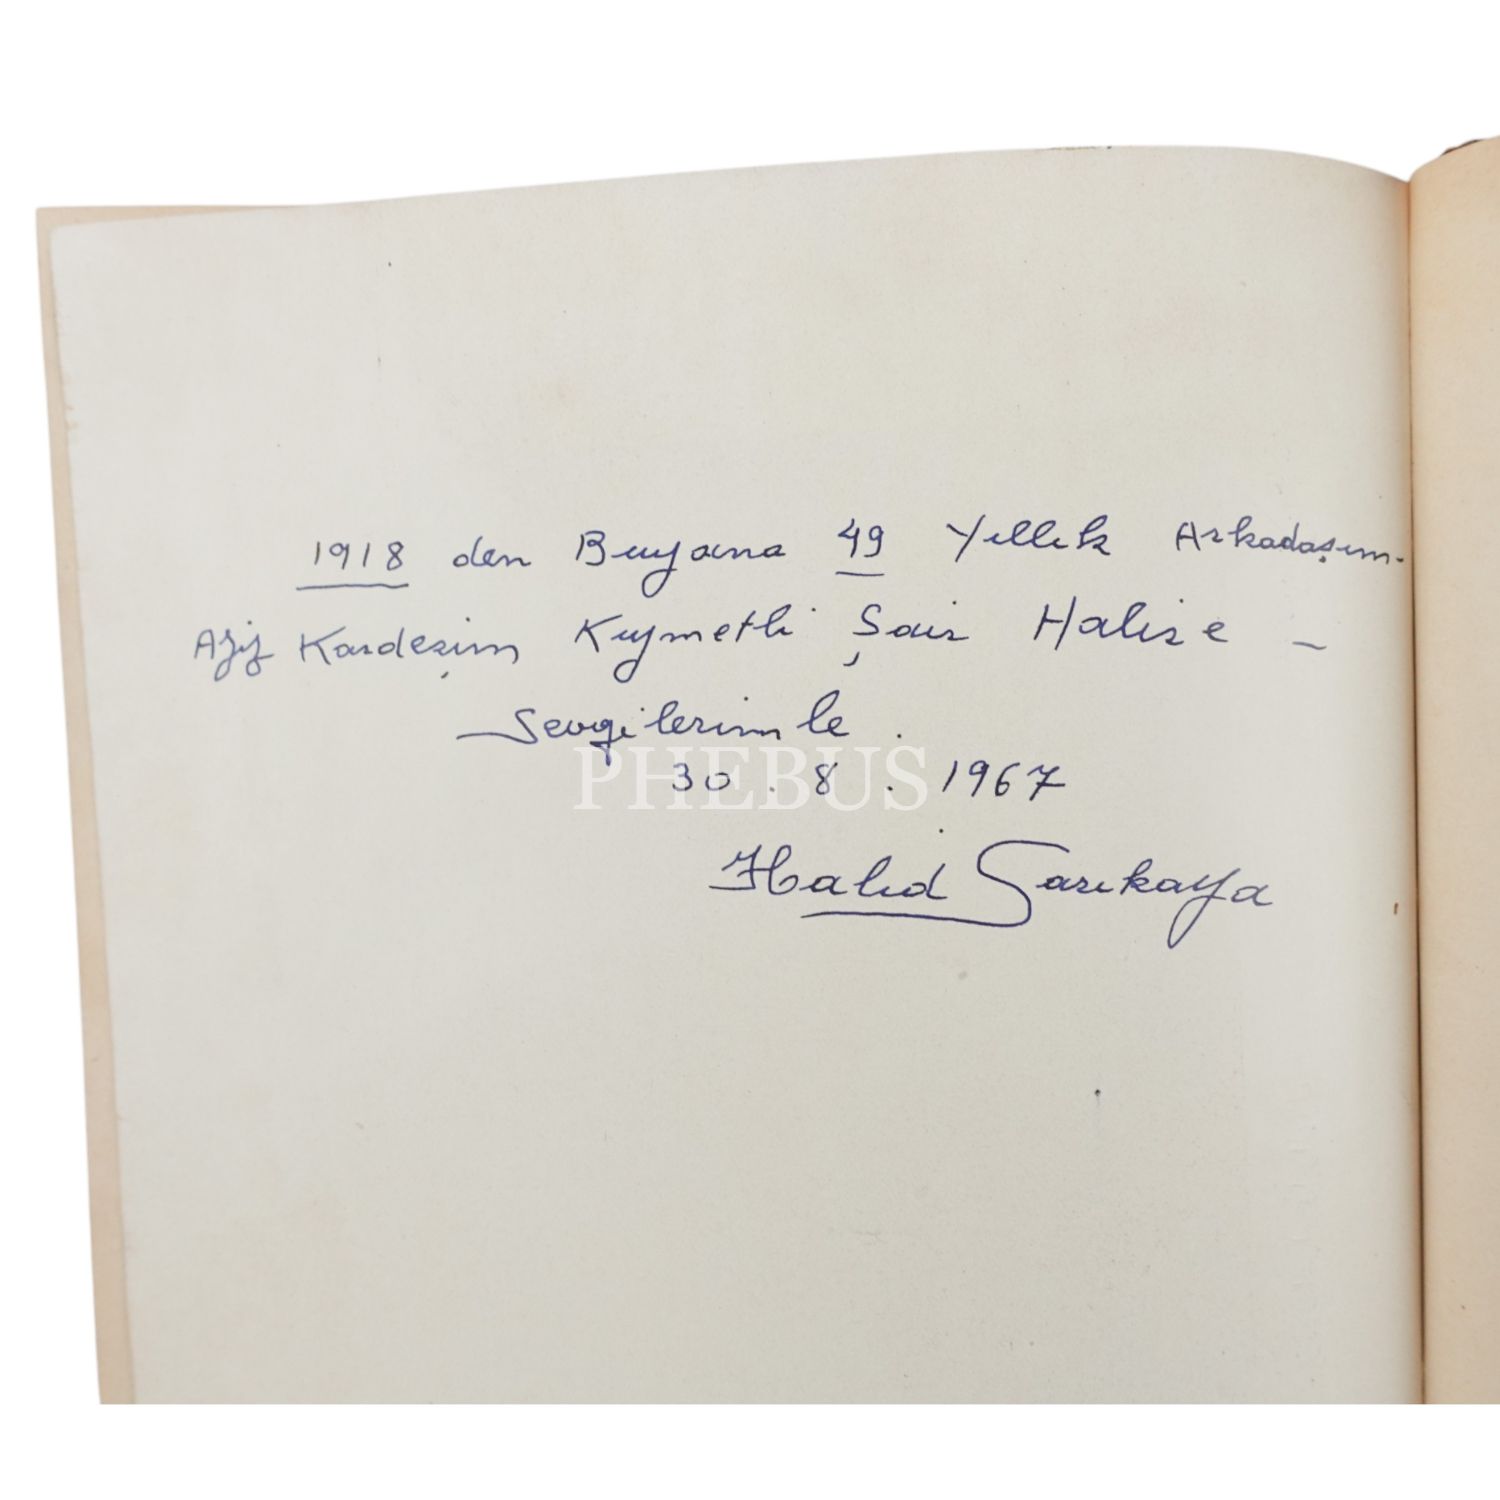 1918 den Buyana 49 Yıllık Arkadaşım-
Aziz Kardeşim Kıymetli Şair Halis'e -
Sevgilerimle.
PHEBUS
30.8.1967
Halid Sarıkaya